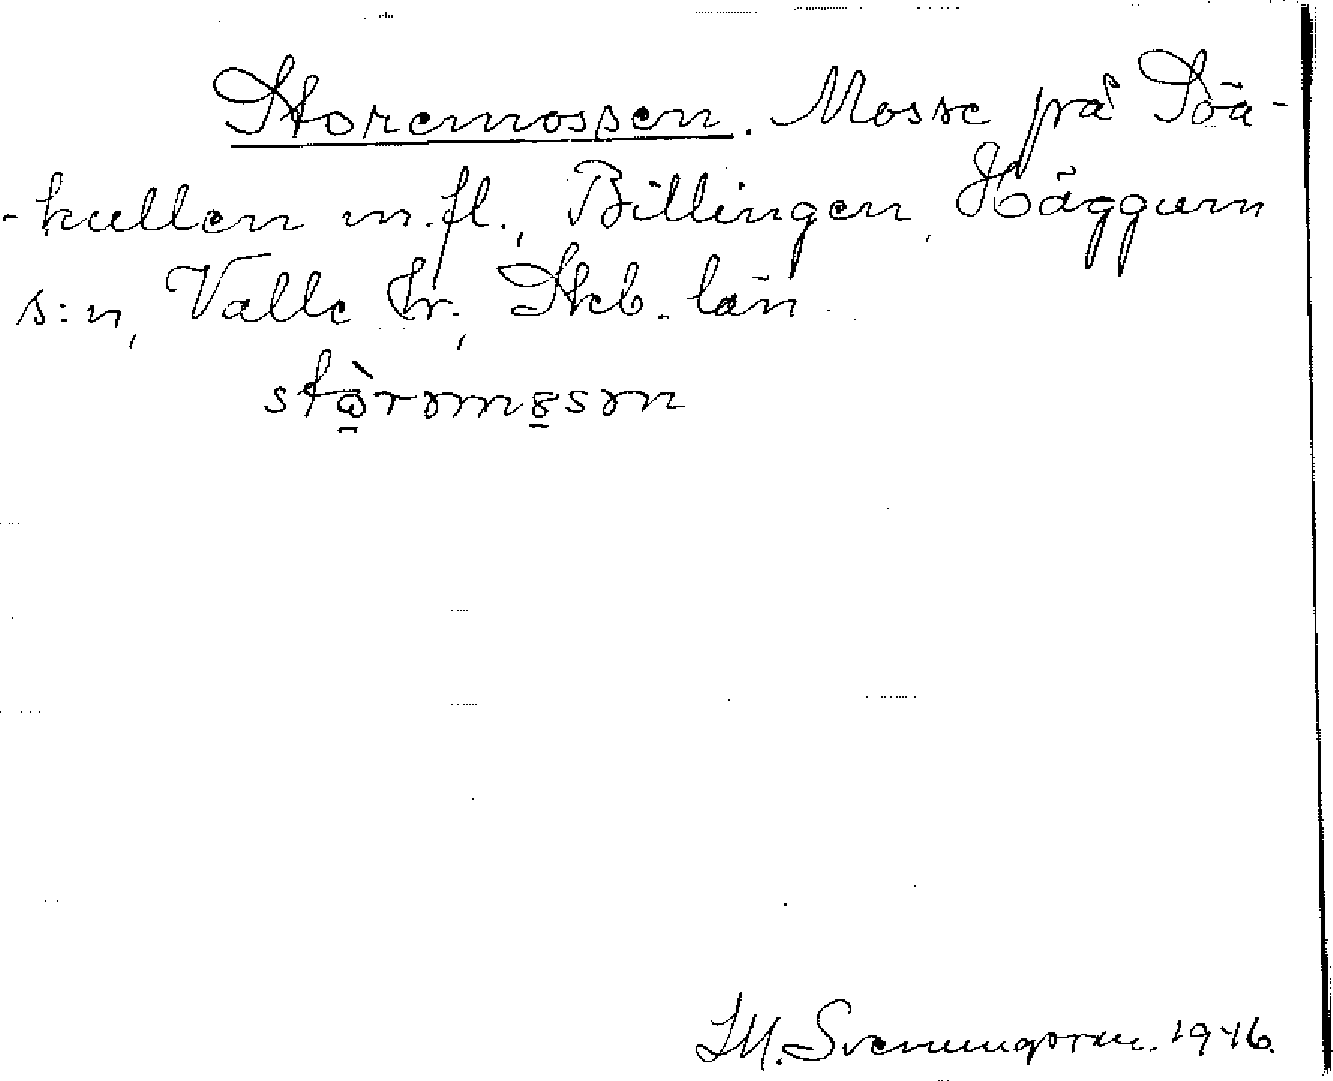 Storemossen. Mosse på Töa-
-kullen m.fl., Billingen, Häggum
s:n, Valle hr., Skb. län
I. M. Svenungsson. 1946.